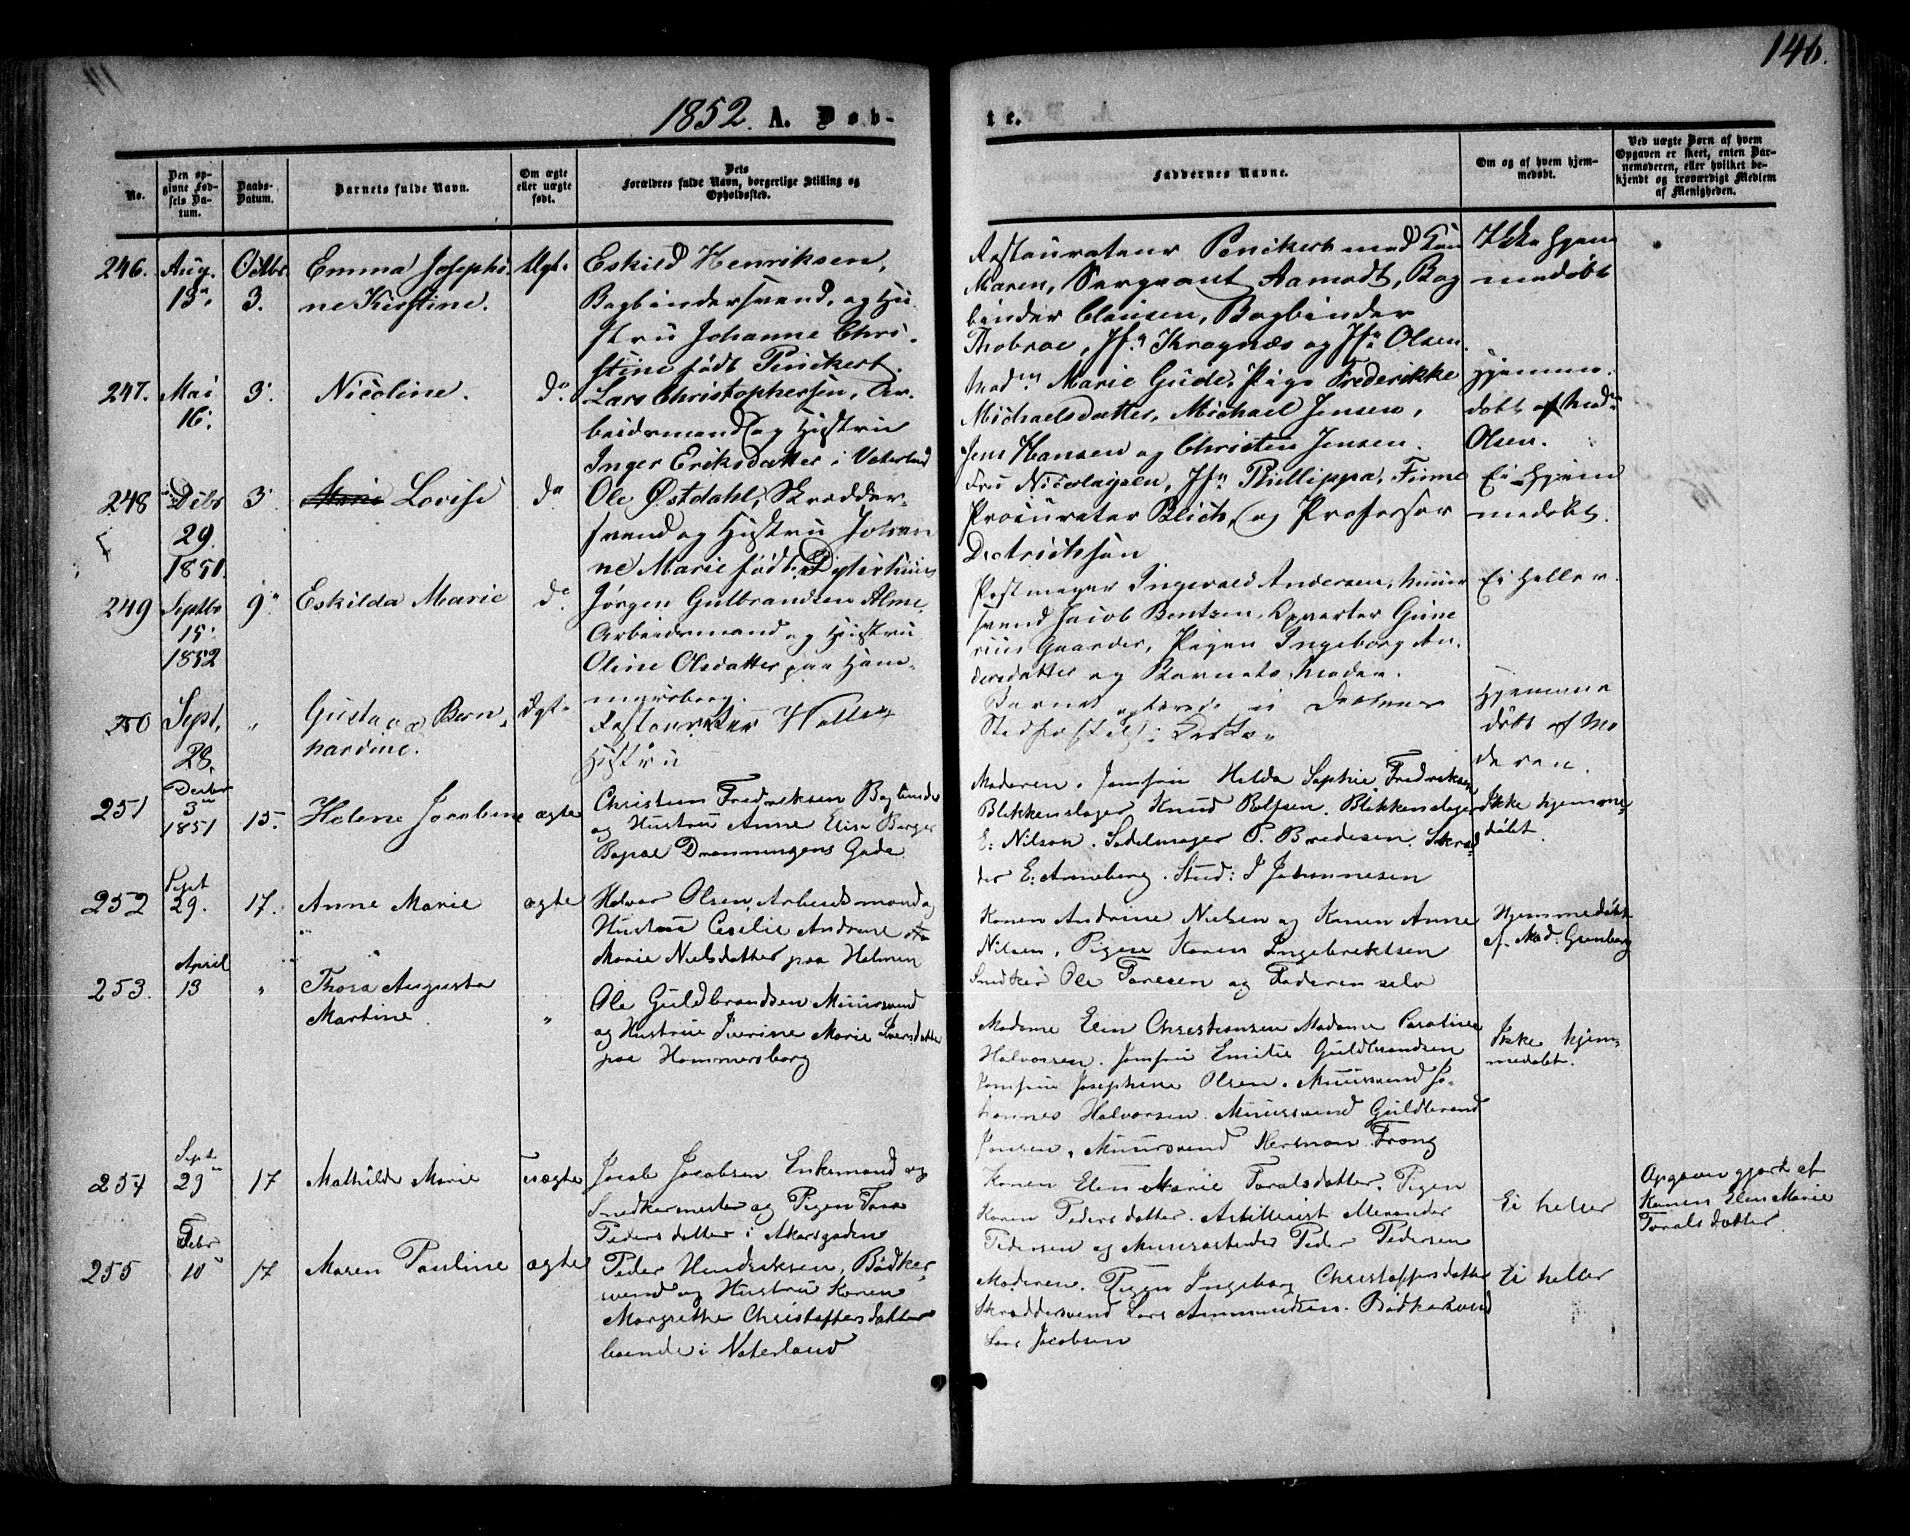 146.
1852. A. Døb-
te.
No.
Den opgivne Fødsels Datum.
Daabs-Datum.
Barnets fulde Navn.
Om ægte eller uægte født.
Dets Forældres fulde Navn, borgerlige Stilling og Opholdssted.
Faddernes Navne.
Om og af hvem hjemmedøbt.
Ved uægte Børn af hvem Opgaven er skeet, enten Barnemoderen, eller hvilket bekjendt og troværdigt Medlem af Menigheden.
246. Aug. Octbr. Emma Josephi- Ægt. Eskild Henriksen,
13. 3. ne Kirstine. Bogbindersvend, og Hu-
stru Johanne Chri-
stine født Pinckert.
Restaurateur Pinckert med Kone
Maren, Sergeant Aamodt, Bog
binder Clausen, Bogbinder
Jfr. Kragnæs og Jfr. Olsen.
Ikke hjem
medøbt
247. Mai 3. Nicoline. do. Lars Christophersen, Ar-
16. beidsmand og Hustru
Inger Eriksdatter i Vaterland
Madm. Marie Gude, Pige Frederikke
Michaelsdatter, Michael Jensen,
Jens Hansen og Christen Jensen.
Hjemme-
døbt af Madm.
Olsen.
248 Debr 3. Marie Lovise do. Ole Østdahl, Skrædder-
29. svend og Hustru Johan
1851. ne Marie født
Fru Nicolaysen, Jfr. Phillippa, Finne
Procurator Blich, og Professor
Ei hjem
medøbt.
249 Septbr 9. Eskilda Marie do. Jørgen Gulbrandsen Alme,
15. Arbeidsmand og Hustru
1852 Oline Olsdatter paa Ham-
mersborg.
Pottmager Ingevald Andersen, Muur
svend Jacob Bentzen, Qvarter Gune
rius Gaarder, Pigen Ingeborg An
dersdatter og Barnets Moder.
Ei heller.
250 Sept. " Gustava Bern- Ægte Restauratør Holles
28. hardine. Hustru
Barnet
Hjemme
døbt af Mo
deren.
251 Decbr 3 1851 15. Helene Jacobine ægte Christian Fredriksen Bogbinder
og Hustru Anne Elise Borger
Dronningens Gade.
Moderen. Jomfru Hilda Sophie Fredriksen
Blikkenslager Knud Rolfsen. Blikkenslager
E: Nilson. Sadelmager P. Bredesen. Skræd
der E: Anneberg. Stud: J Johannesen
Ikke hjemme-
døbt.
252 Sept 29. 17. Anne Marie ægte Halvor Olsen, Arbeidsmand og
Hustru Cecilie Andrine
Marie Nielsdatter paa Holmen
Konen Andrine Nielsen og Konen Anne
Nilsen, Pigen Karen Ingebrektsen
Snedker Ole Toresen og Faderen selv
Hjemmedøbt
af Mad: Grønberg
253. April 13 " Thora Augusta
Martine. " Ole Guldbrandsen Muursvend
og Hustrue Severine Marie
paa Hammersborg
Madame Elen Christiansen Madame Caroline
Halvorsen. Jomfru Emilie Guldbrandsen
Jomfrue Josephine Olsen. Muursvend Jo-
hannes Halvorsen. Muursvend Guldbrand
Jonsen, Muursvend Herman Trong
Ikke hjem-
medøbt.
254 Sept 29 17 Mathilde Marie uægte Jacob Jacobsen Enkemand og
Snedkermester og Pigen Tora
Pedersdatter i Akersgaden
Konen Elen Marie Toralsdatter. Pigen
Karen Pedersdatter. Artillerist Alexander
Pedersen og Muurarbeider Peder Pedersen
Ei heller
Opgaven gjort af
Konen Elen Marie
Toralsdatter.
255 Febr 10 17 Maren Pauline ægte Peder Hendriksen, Bødker-
svend og Hustru Karen
Margrethe Christoffersdatter
boende i Vaterland
Moderen. Pigen Ingeborg Christoffersdatter
Skræddersvend Lars Ammundsen. Bødkersvend
Lars Jacobsen
Ei heller